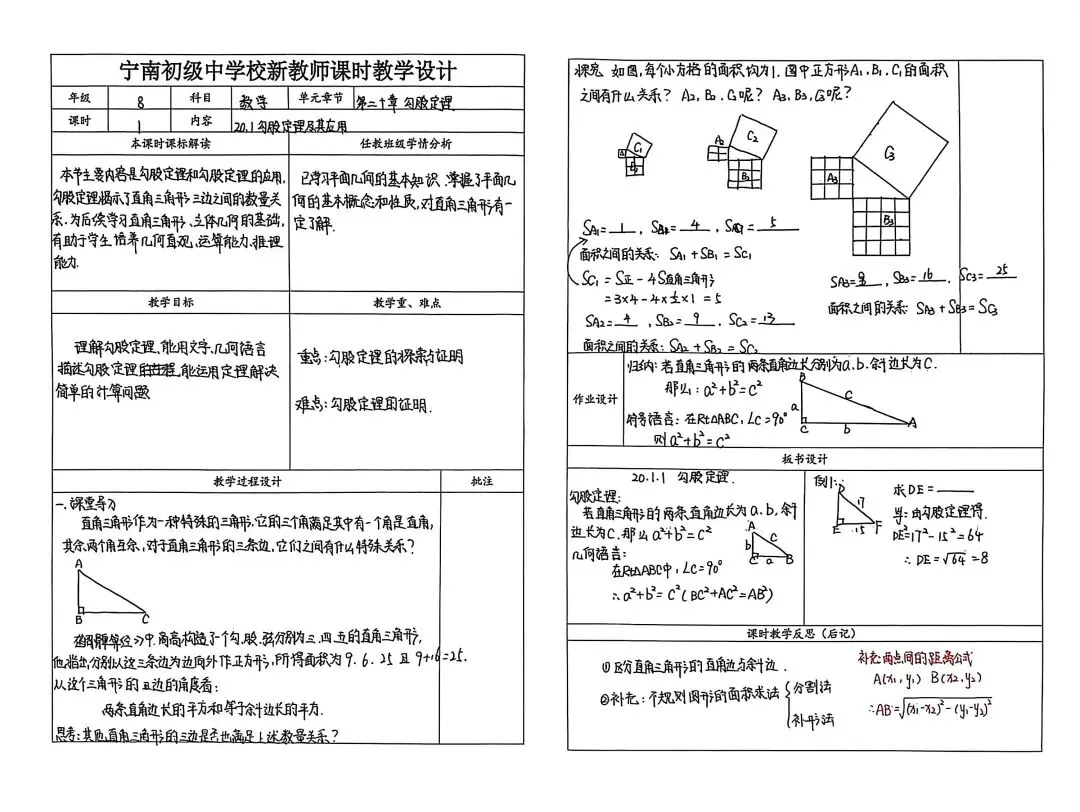 宁南初级中学校新教师课时教学设计
年级 8 科目 数学 单元章节 第二十章 勾股定理
课时 1 内容 20.1勾股定理及其应用
本课时课标解读 任教班级学情分析
本节主要内容是勾股定理和勾股定理的应用,
勾股定理揭示了直角三角形三边之间的数量关
系.为后续学习直角三角形、立体几何的基础,
有助于学生培养几何直观,运算能力、推理
能力.
已学习平面几何的基本知识.掌握了平面几
何的基本概念和性质,对直角三角形有一
定了解.
教学目标 教学重、难点
理解勾股定理,能用文字,几何语言
描述勾股定理的,能运用定理解决
简单的计算问题
重点:勾股定理的探索与证明
难点:勾股定理的证明.
教学过程设计 批注
一.课堂导入
直角三角形作为一种特殊的三角形,它的三个角满足其中有一个角是直角,
其余两个角互余,对于直角三角形的三条边,它们之间有什么特殊关系?
A
B C
中,商高构造了一个勾,股,弦分别为三、四、五的直角三角形,
他指出,分别以这三条边为边向外作正方形,所得面积为9.6.25 且9+16=25.
从这个三角形的三边的角度看:
两条直角边长的平方和等于斜边长的平方.
思考:其他直角三角形的三边是否也满足上述数量关系?
探究 如图,每个小方格的面积均为1.图中正方形A₁,B₁,C₁的面积
之间有什么关系? A₂,B₂,C₂呢? A₃,B₃,C₃呢?
C₁
A₂ C₂ B₂
A₃ C₃ B₃
SA₁=1,SB₁=4,SC₁=5
面积之间的关系: SA₁+SB₁=SC₁
SC₁=S正-4S直角三角形
=3×4-4×½×1=5
SA2=4,SB₂=9,SC₂=13
面积之间的关系: SA₂+SB₂=SC₂
SA3=9,SB₃=16,SC₃=25
面积之间的关系: SA₃+SB₃=SC₃
作业设计
归纳:若直角三角形的两条直角边长分别为a、b.斜边长为C.
那么:a²+b²=c²
符号语言:在Rt△ABC,∠C=90°
则a²+b²=c²
B a c C b A
板书设计
20.1.1 勾股定理.
勾股定理:
若直角三角形的两条直角边长为a.b,斜
边长为C.那么a²+b²=c²
几何语言:
在Rt△ABC中,∠C=90°
∴a²+b²=c²(BC²+AC²=AB²)
A b c C a B
例1:
D 17 E 15 F
求DE=____
解:由勾股定理得.
DE²=17²-15²=64
∴DE=√64=8
课时教学反思(后记)
①区分直角三角形的直角边与斜边.
②补充:不规则图形的面积求法 { 分割法
补形法
补充:两点间的距离公式
A(x₁,y₁) B(x₂,y₂)
∴AB=√(x₁-x₂)²-(y₁-y₂)²